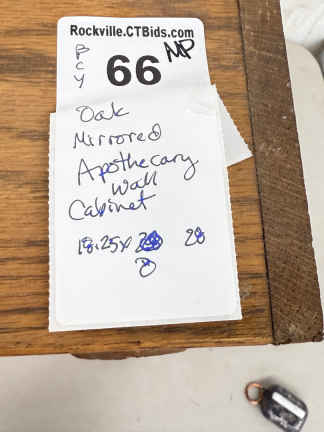 Rockville.CTBids.com
B
C
Y
66
MP
Oak
Mirrored
Apothecary
Wall
Cabinet
18.25x 28
8